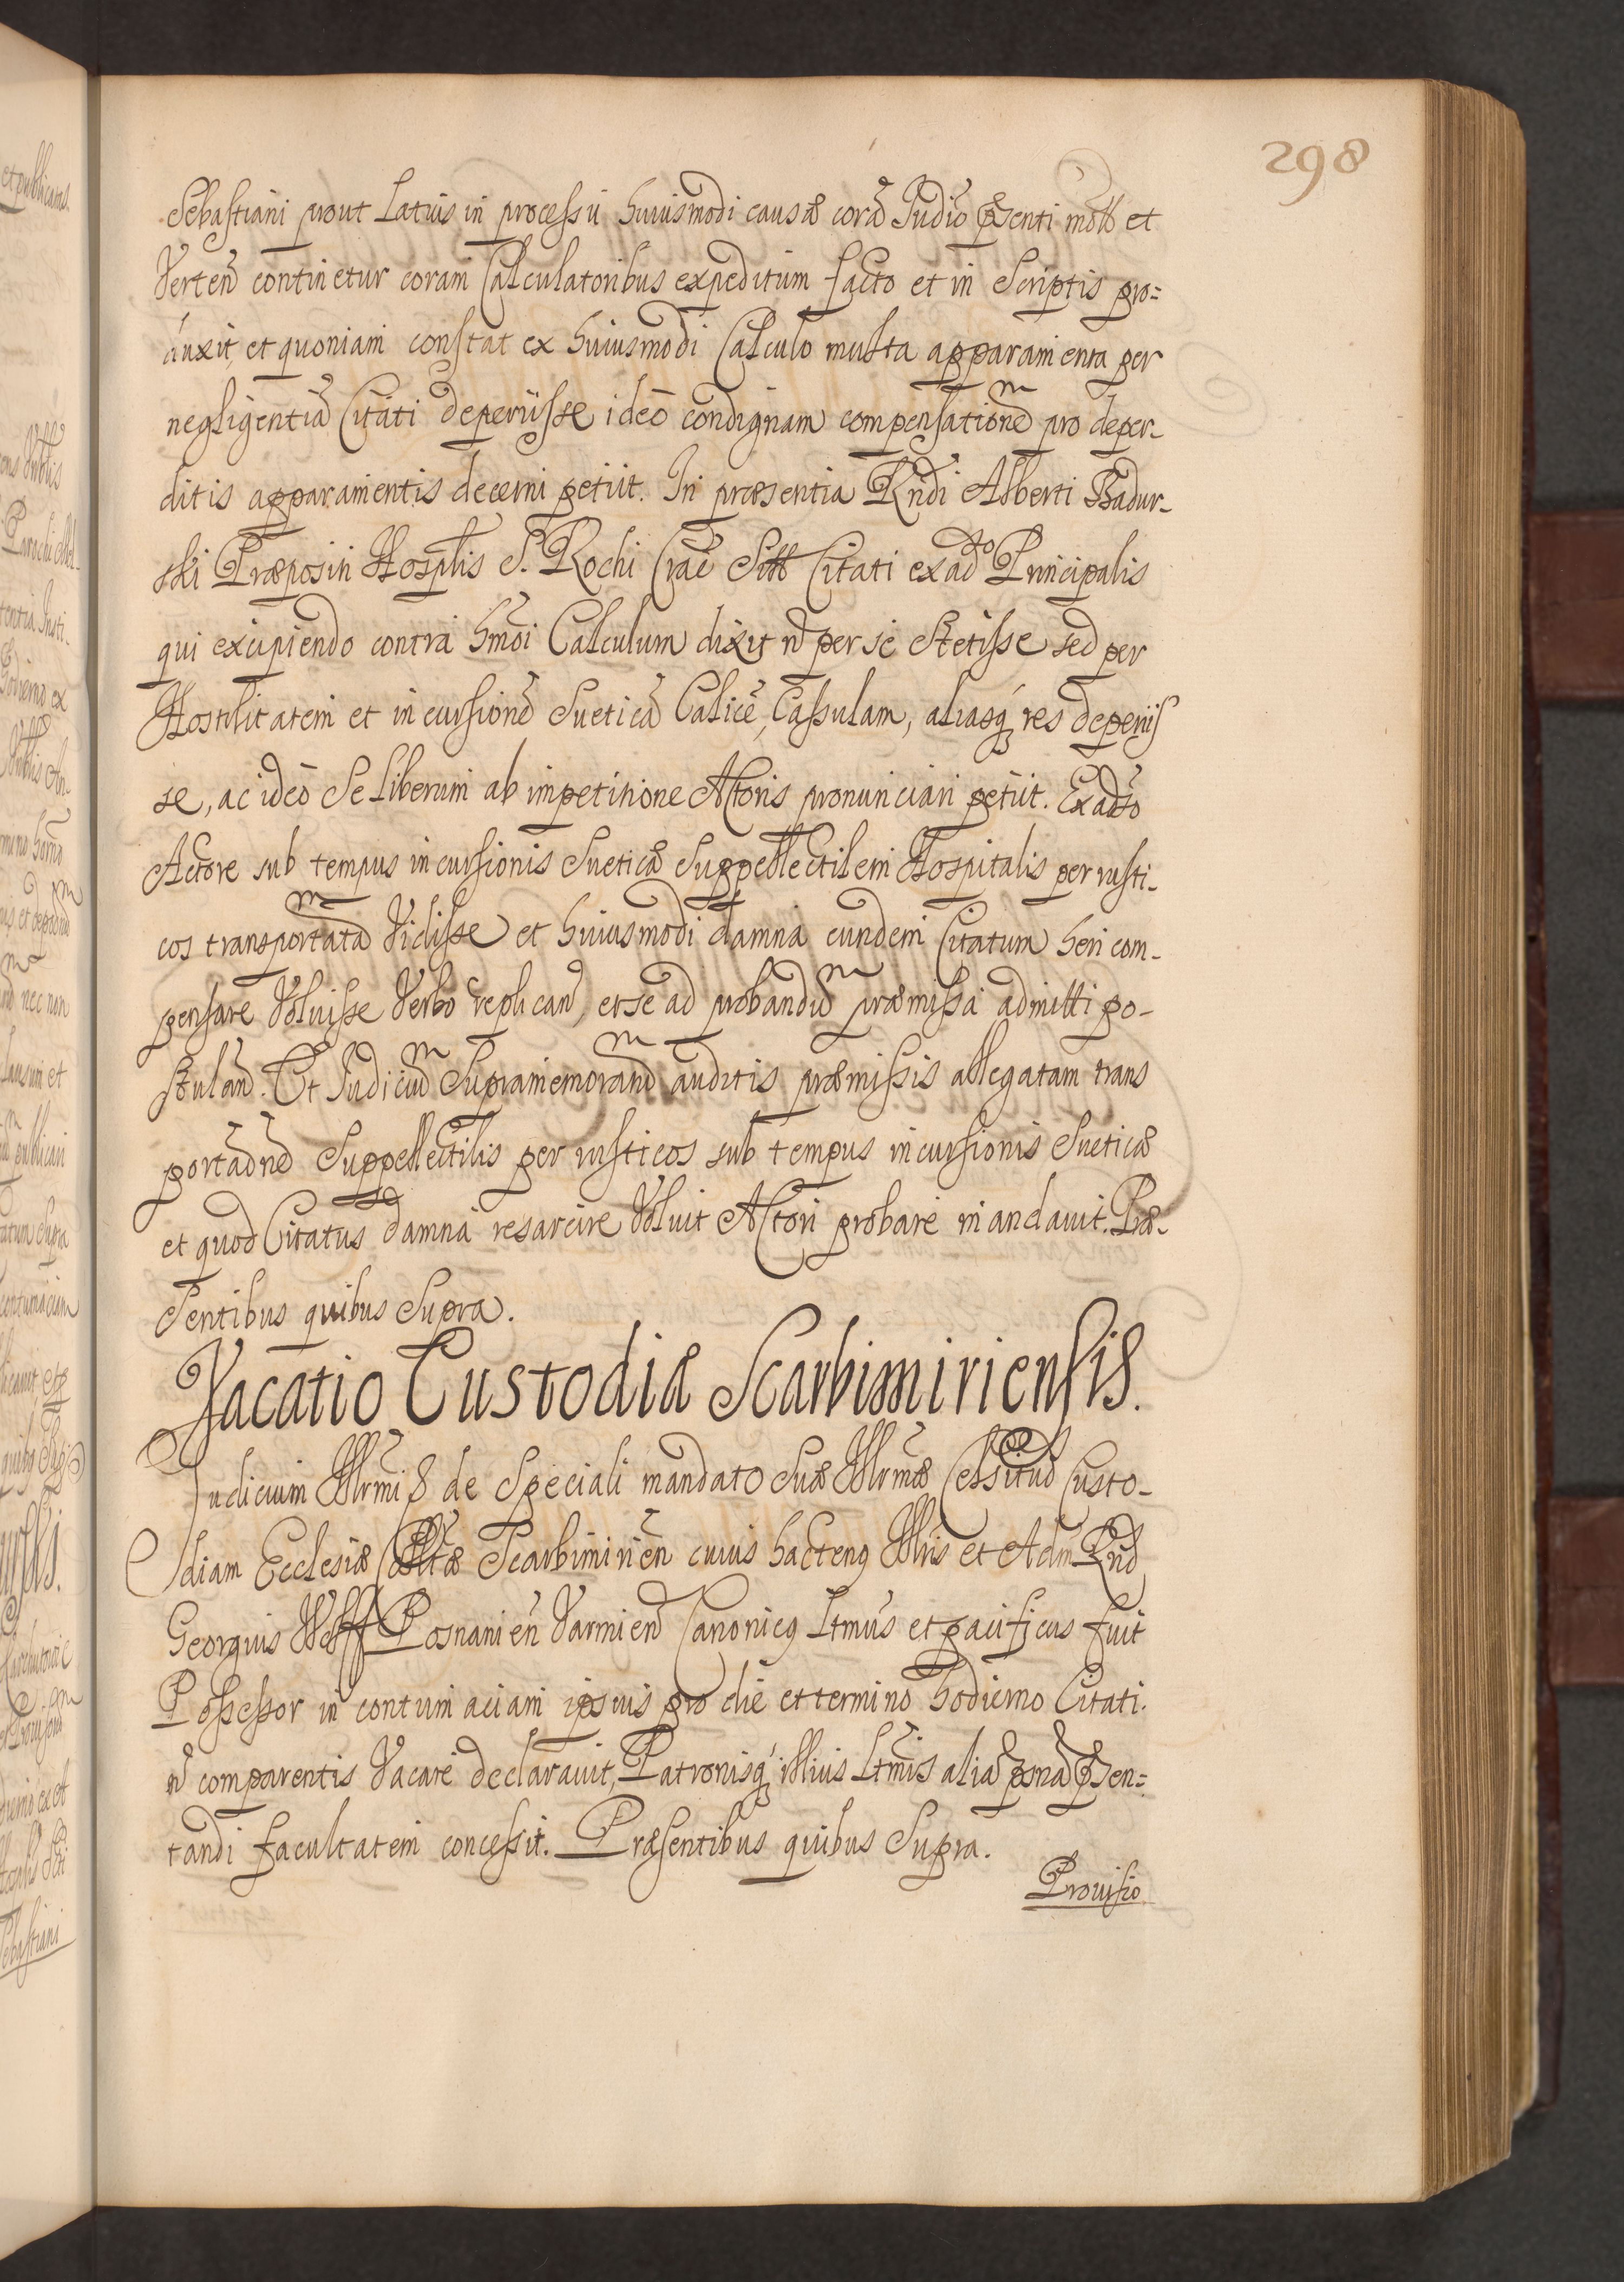 298
Sebastiani prout Latius in processu huiusmodi causæ corã Judiõ pñsenti mõtt et
Verteñ continetur coram Calculatoribus expeditum facto et in Scriptis pro=
duxit, et quoniam constat ex huiusmodi Calculo multa apparamenta per
negligentiã Citati deperiisse ideõ condignam compensationẽ pro deper-
ditis apparamentis decerni petiit. In præsentia Rñdi Alberti Badur-
ski Præpositi Hosplis S. Rochi Craẽ Citati ex adto Principalis
qui excipiendo contra hmõi Calculum dixit ñ per se Stetisse sed per
Hostilitatem et incursionẽ Sueticã Calicẽ, Cassulam, aliasq; res deperiis
se, ac ideõ Se Liberum ab impetitione Actoris pronunciari petiit. Ex adto
Actore sub tempus incursionis Sueticæ Suppellectilem Hospitalis per rusti-
cos transportatã Vidisse et huiusmodi damna eundem Citatum heri com-
pensare Voluisse Verbo replicañ, et se ad probandũ præmissa admitti po-
stulañ. Et Judiciũ Supramemorañ auditis præmissis allegatam trans
portãõnẽ Suppellectilis per rusticos sub tempus incursionis Sueticæ
et quod Citatus damna resarcire Voluit Actori probare mandauit. Præ-
Sentibus quibus Supra.
Vacatio Custodiæ Scarbimiriensis.
Judicium Illrmi S de Speciali mandato Suæ Illrmæ Celsitud Custo-
diam Ecclesiæ Colltæ Scarbimirieñ cuius hactenq Illris et Adm Rñd
Georgius Posnanieñ Varmieñ Canonicq Ltmus et pacificus fuit
Possessor in contumaciam ipsius pro die et termino hodierno Citati.
ñ comparentis Vacare declarauit, Patronisq; illius Ltmis aliã psnã pñsen=
tandi facultatem concessit. Præsentibus quibus Supra.
Prouisio